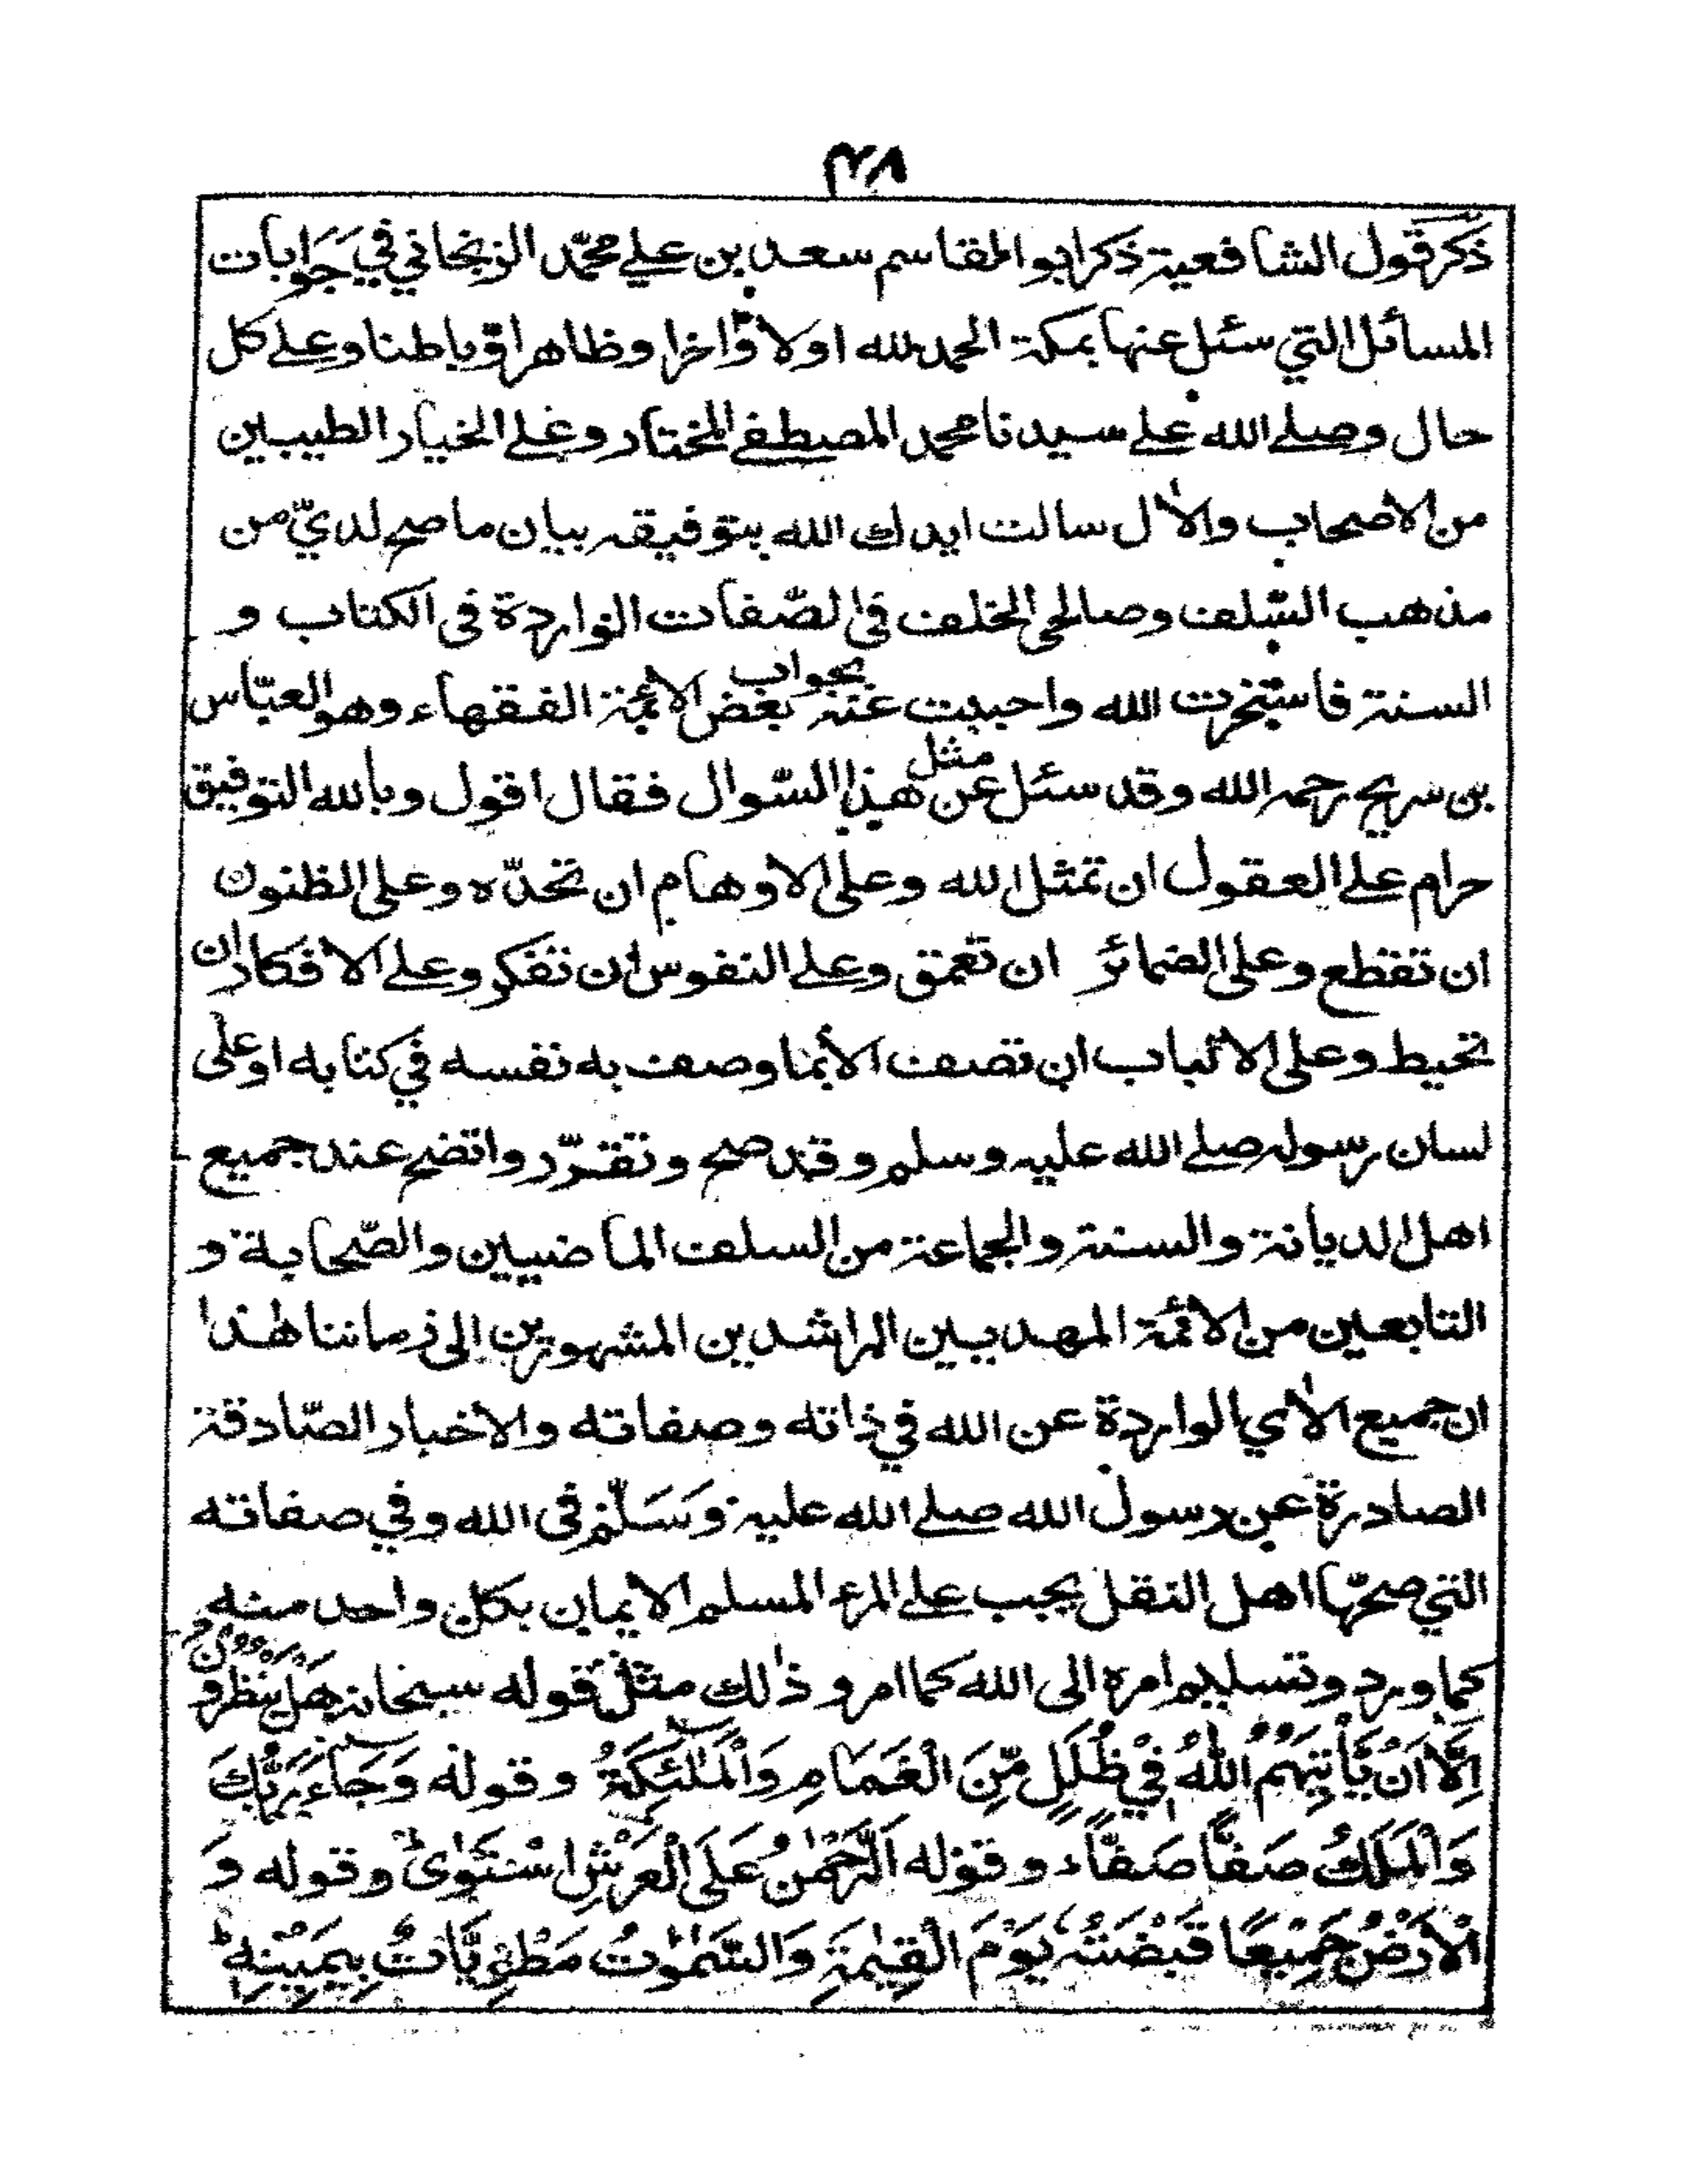 ٢٨
ذكر قول الشافعية ذكر ابو القاسم سعد بن علي محمّد الزنجاني في جوابات
المسائل التي سئل عنها بمكة الحمد لله اولا وّاخرا وظاهرا وّباطنا وعلى كل
حال وصلى الله على سيدنا محمد المصطفى المختار وعلى الخيار الطيبين
من الاصحاب والاٰل سالت ايدك الله بتوفيقه بيان ما صح لديّ من
مذهب السّلف وصالحي الخلف في الصّفات الواردة فى الكتاب و
السنة فاستخرت الله واجبت عنه بجواب بعض الائمة الفقهاء وهو العبّاس
بن سريج رحمه الله وقد سئل عن مثل هذا السّوال فقال اقول وبالله التوفيق
حرام على العقول ان تمثل الله وعلى الاوهام ان تحدّه وعلى الظنون
ان تقطع وعلى الضمائر ان تعمق وعلى النفوس ان تفكر وعلى الافكار ان
تحيط وعلى الالباب ان تصف الا بما وصف به نفسه في كتابه او على
لسان رسوله صلى الله عليه وسلم وقد صح وتقرّر واتضح عند جميع
اهل الديانة والسنة والجماعة من السلف الماضيين والصّحابة و
التابعين من الائمة المهديين الراشدين المشهورين الى زماننا هذا
ان جميع الاٰي الواردة عن الله في ذاته وصفاته والاخبار الصّادقة
الصادرة عن رسول الله صلى الله عليه وَسَلّم فى الله وفي صفاته
التي صحّها اهل النقل يجب على المرء المسلم الايمان بكل واحد منه
كما ورد وتسليم امره الى الله كما امر و ذٰلك مثل قوله سبحانه هَلْ يَنْظُرُوْنَ
اِلَّا اَنْ يَّأْتِيَهُمُ اللهُ فِيْ ظُلَلٍ مِّنَ الْغَمَامِ وَالْمَلٰئِكَةُ وقوله وَجَاءَ رَبُّكَ
وَالْمَلَكُ صَفًّا صَفًّا وقوله اَلرَّحْمٰنُ عَلَى الْعَرْشِ اسْتَوٰى وقوله وَ
الْاَرْضُ جَمِيْعًا قَبْضَتُهٗ يَوْمَ الْقِيٰمَةِ وَالسَّمٰوٰتُ مَطْوِيَّاتٌ بِيَمِيْنِهٖ